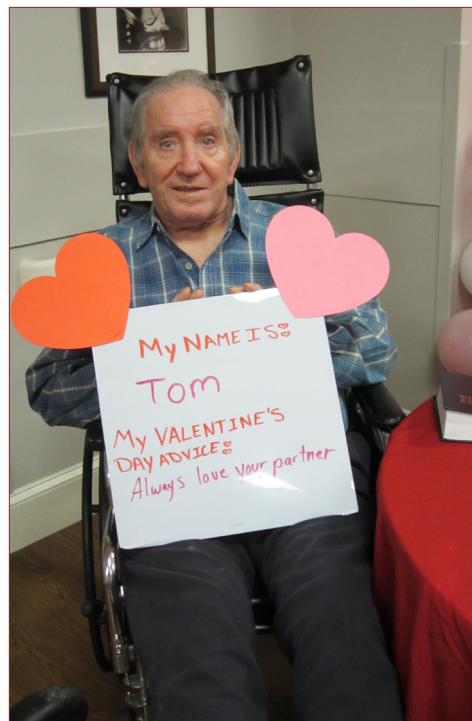 My NAME IS:
Tom
My VALENTINE'S
DAY ADVICE:
Always love your partner